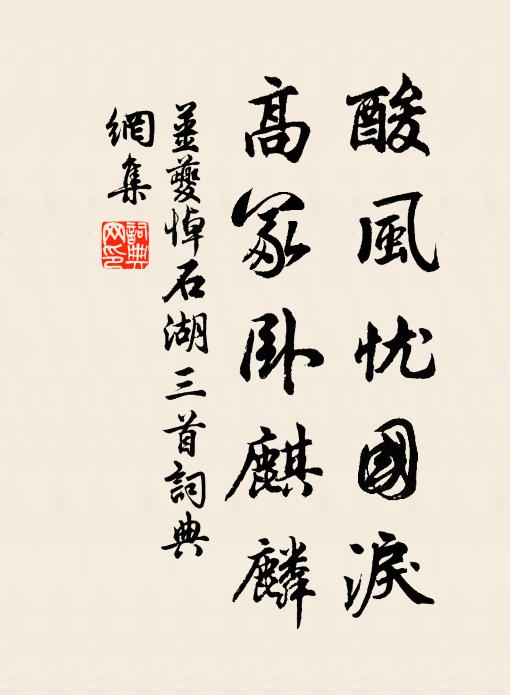 酸風忧國淚
高冢卧麒麟
姜夔悼石湖三首詞典
網集
詞典網印